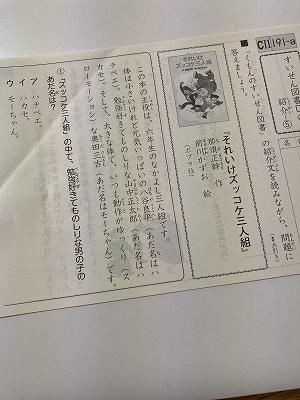 CⅡ191-a
すいせん図書
紹介⑤
名
■『くもんのすいせん図書』の紹介文を読みながら、問題に
答えましょう。
『それいけズッコケ三人組』
那須正幹 作
前川かずお 絵
(ポプラ社)
それいけ
ズッコケ三人組
この本の主役は、六年生のなかよし三人組です。
体は小さいけれど元気いっぱいの八谷良平(あだ名はハ
チベエ)。勉強好きでものしりな山中正太郎(あだ名はハ
カセ)。そして、大きな体で、いつも動作がゆっくり(ス
ローモーション)な奥田三吉(あだ名はモーちゃん)です。
① 「ズッコケ三人組」の中で、勉強好きでものしりな男の子の
あだ名は?
ア ハチベエ。
イ ハカセ。
ウ モーちゃん。